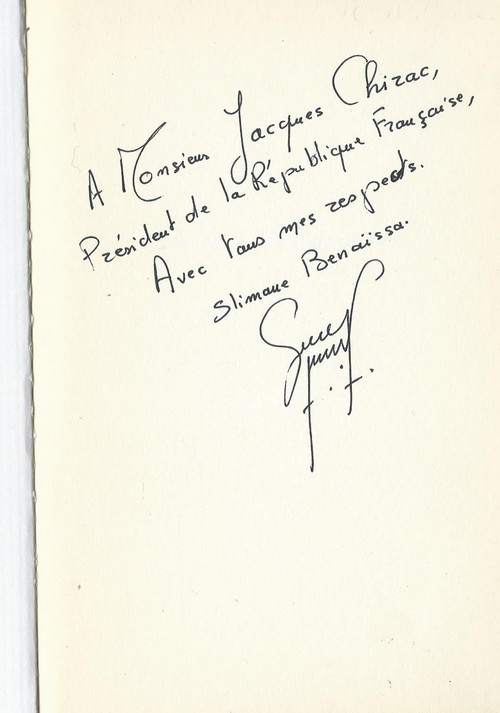 A Monsieur Jacques Chirac,
Président de la République Française,
Avec tous mes respects.
Slimane Benaïssa.